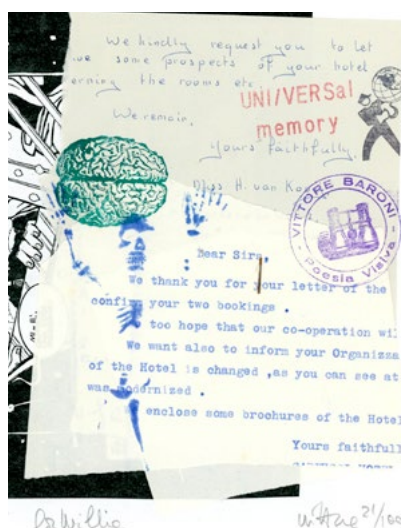 We kindly request you to let
some prospects of your hotel
the rooms etc
We remain,
Yours faithfully,
Miss H. van
UNI/VERSal
memory
VITTORE BARONI
Poesia Visiva
Dear Sirs,
We thank you for your letter of the
your two bookings .
too hope that our co-operation
We want also to inform your
of the Hotel is changed ,as you can see at
was modernized .
enclose some brochures of the Hotel
Yours
21/100